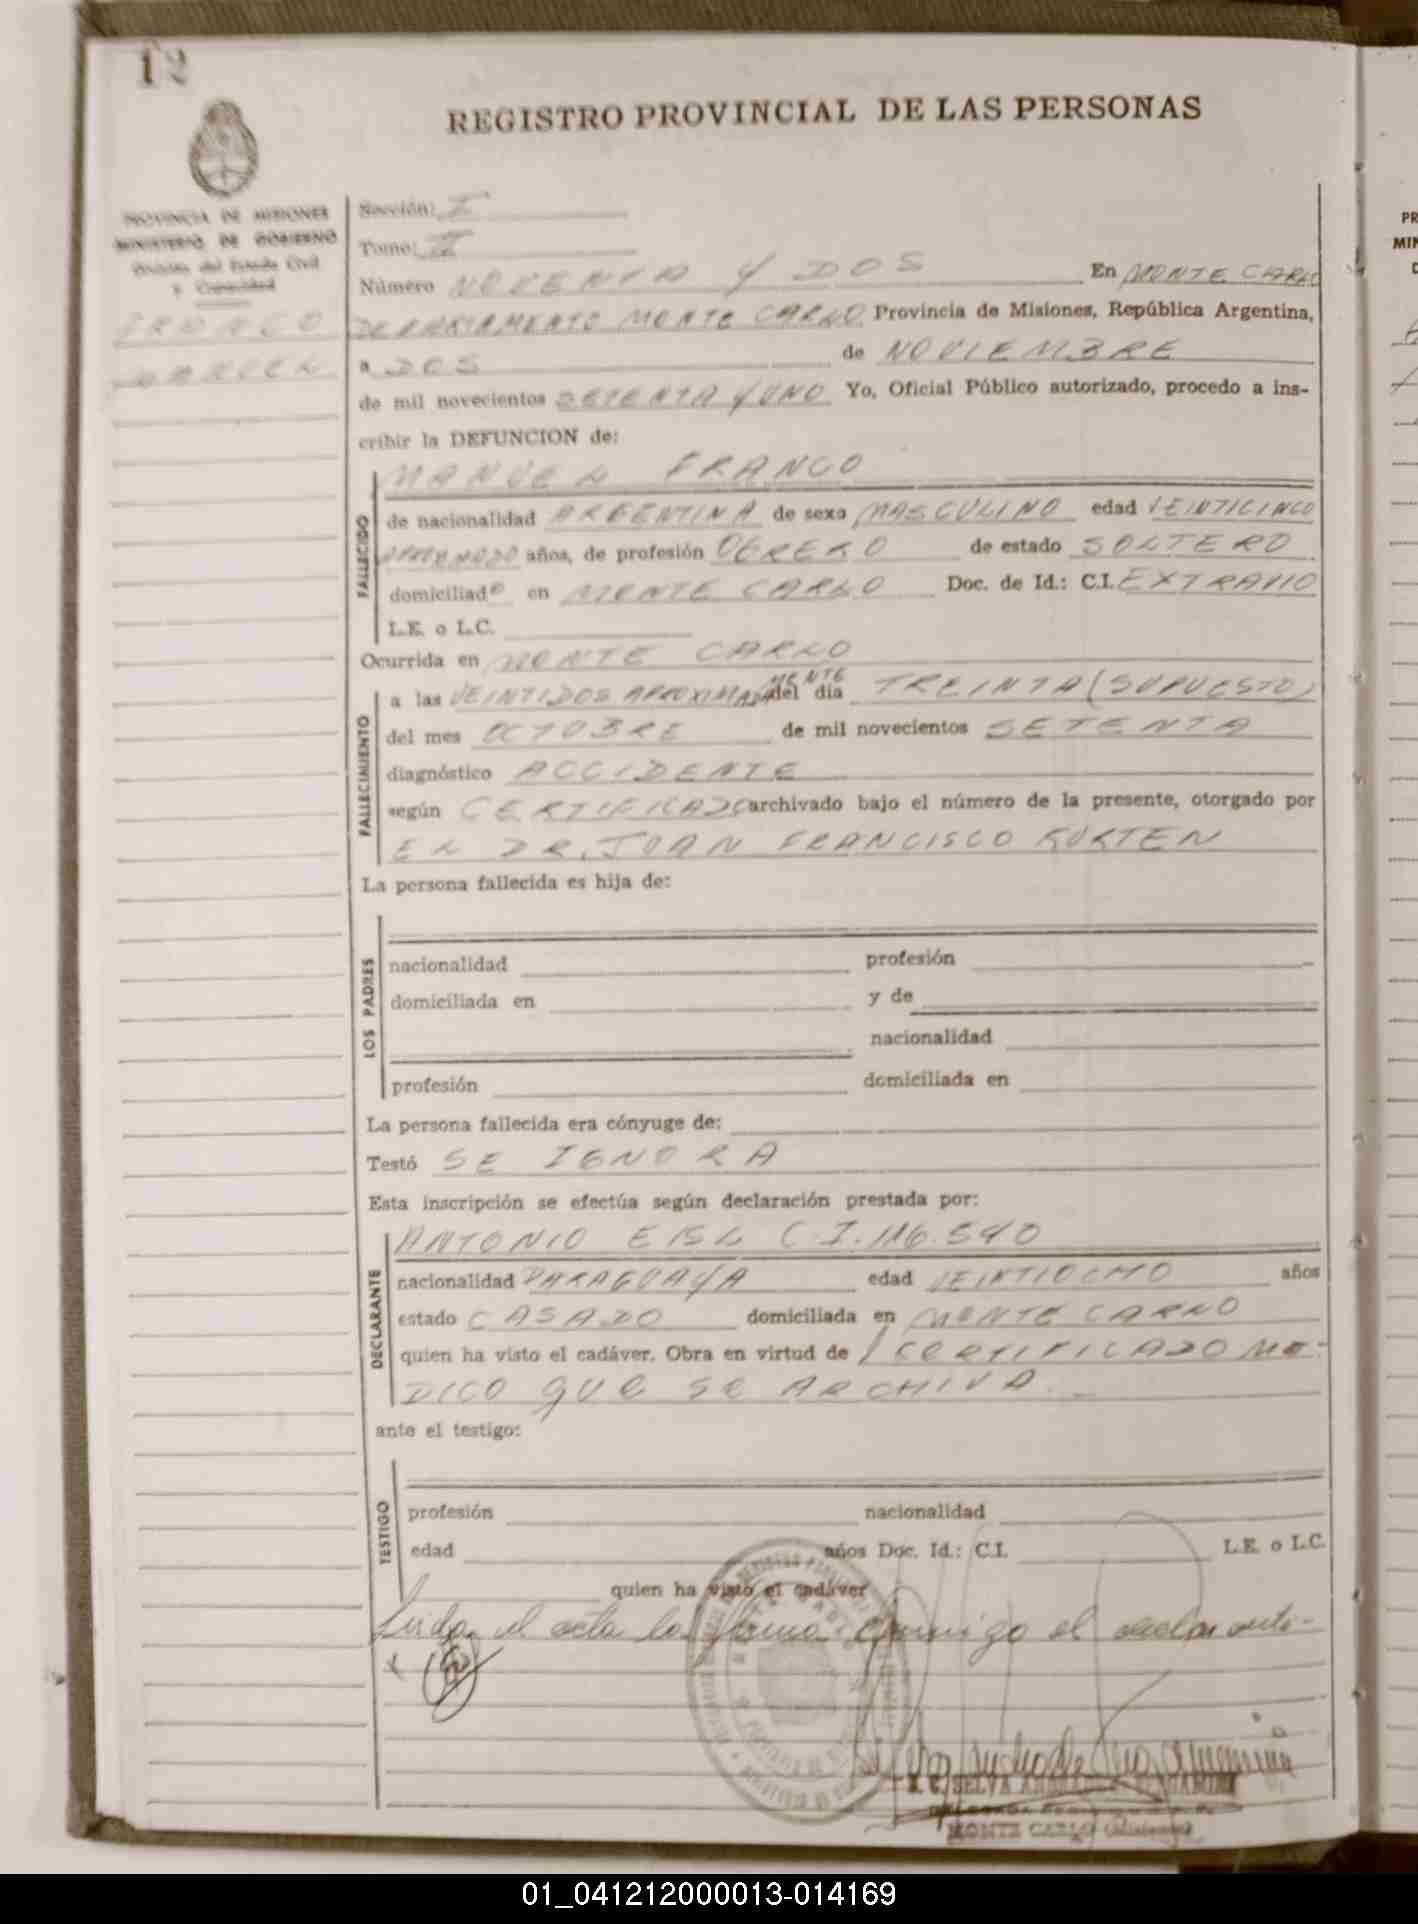 12
REGISTRO PROVINCIAL DE LAS PERSONAS
PROVINCIA DE MISIONES
MINISTERIO DE GOBIERNO
División del Estado Civil
y Capacidad
FRANCO
MANUEL
Sección: I
Tomo: II
Número NOVENTA Y DOS En MONTE CARLO
DEPARTAMENTO MONTE CARLO Provincia de Misiones, República Argentina,
a DOS de NOVIEMBRE
de mil novecientos SETENTA Y UNO Yo, Oficial Público autorizado, procedo a ins-
cribir la DEFUNCION de:
MANUEL FRANCO
FALLECIDO
de nacionalidad ARGENTINA de sexo MASCULINO edad VEINTICINCO
años, de profesión OBRERO de estado SOLTERO
domiciliado en MONTE CARLO Doc. de Id.: C.I. EXTRAVIO
L.E. o L.C.
Ocurrida en MONTE CARLO
FALLECIMIENTO
a las VEINTIDOS APROXIMADAMENTE del día TREINTA (SUPUESTO)
del mes OCTUBRE de mil novecientos SETENTA
diagnóstico ACCIDENTE
según CERTIFICADO archivado bajo el número de la presente, otorgado por
EL DR. JUAN FRANCISCO KURTEN
La persona fallecida es hija de:
LOS PADRES
nacionalidad profesión
domiciliada en y de
nacionalidad
profesión domiciliada en
La persona fallecida era cónyuge de:
Testó SE IGNORA
Esta inscripción se efectúa según declaración prestada por:
DECLARANTE
ANTONIO C.I. 116.540
nacionalidad PARAGUAYA edad VEINTIOCHO años
estado CASADO domiciliada en MONTE CARLO
quien ha visto el cadáver. Obra en virtud de CERTIFICADO ME-
DICO QUE SE ARCHIVA.
ante el testigo:
TESTIGO
profesión nacionalidad
edad años Doc. Id.: C.I. L.E. o L.C.
quien ha visto el cadáver
Leida el acta la firma conmigo el declarante-
MONTE CARLO (Misiones)
PR
MIN
01_041212000013-014169